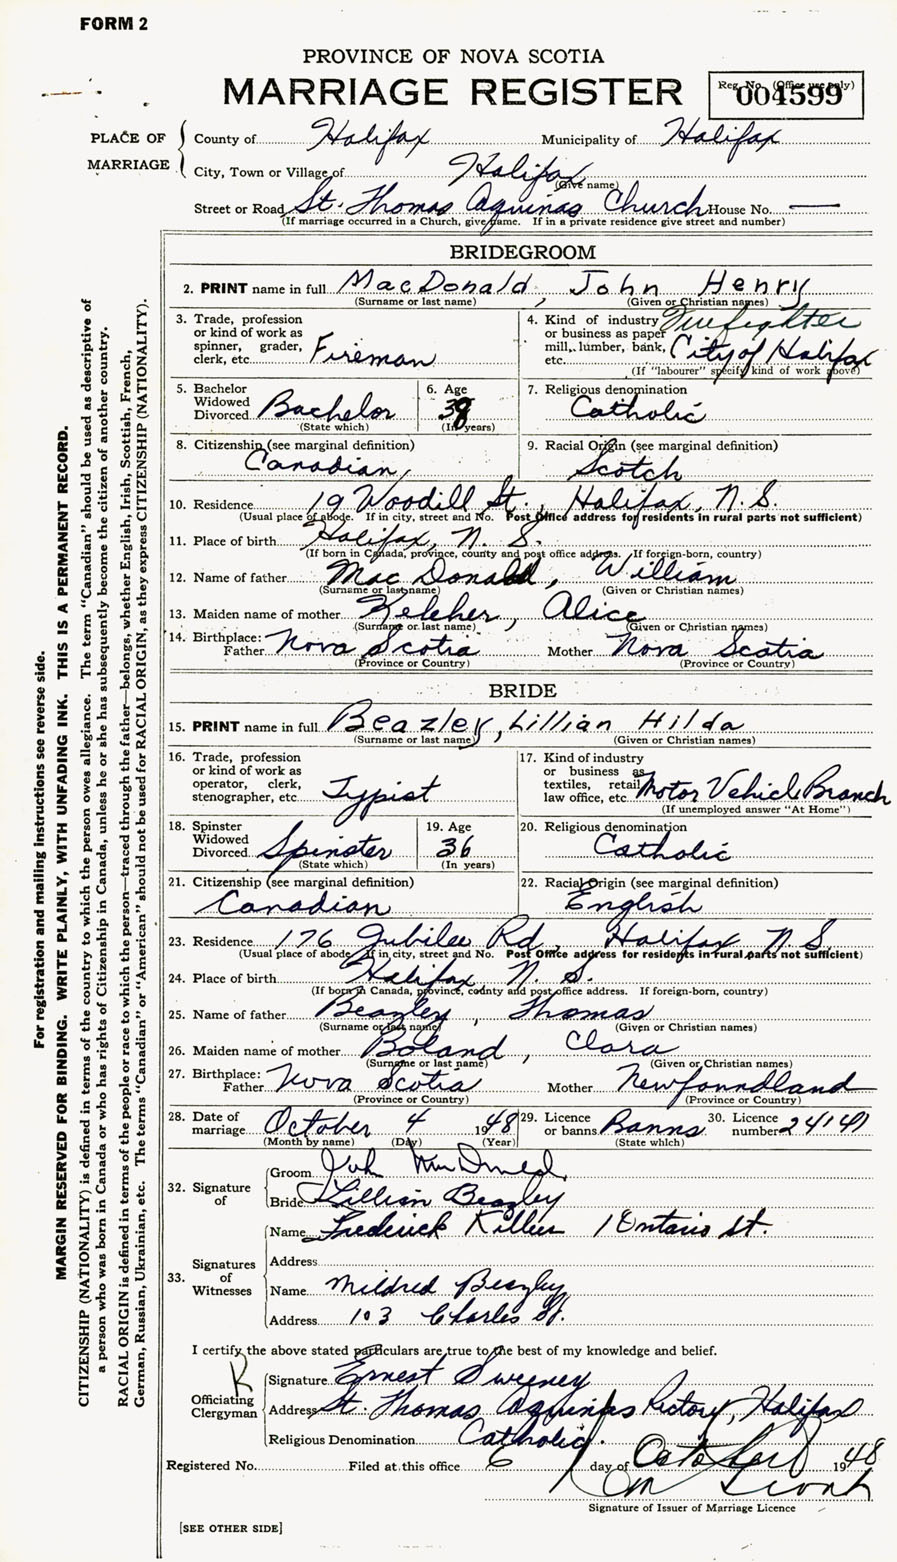 FORM 2
PROVINCE OF NOVA SCOTIA
MARRIAGE REGISTER
Reg. No. (Office use only)
004599
PLACE OF MARRIAGE
County of Halifax Municipality of Halifax
City, Town or Village of Halifax
(Give name)
Street or Road St. Thomas Aquinas Church House No. —
(If marriage occurred in a Church, give name. If in a private residence give street and number)
BRIDEGROOM
2. PRINT name in full MacDonald, John Henry
(Surname or last name) (Given or Christian names)
3. Trade, profession or kind of work as spinner, grader, clerk, etc. Fireman
4. Kind of industry or business as paper mill, lumber, bank, etc. Firefighter City of Halifax
(If "labourer" specify kind of work above)
5. Bachelor Widowed Divorced Bachelor
(State which)
6. Age 39
(In years)
7. Religious denomination Catholic
8. Citizenship (see marginal definition) Canadian
9. Racial Origin (see marginal definition) Scotch
10. Residence 19 Woodill St., Halifax, N.S.
(Usual place of abode. If in city, street and No. Post Office address for residents in rural parts not sufficient)
11. Place of birth Halifax, N. S.
(If born in Canada, province, county and post office address. If foreign-born, country)
12. Name of father Mac Donald, William
(Surname or last name) (Given or Christian names)
13. Maiden name of mother Kelcher, Alice
(Surname or last name) (Given or Christian names)
14. Birthplace: Father Nova Scotia Mother Nova Scotia
(Province or Country) (Province or Country)
BRIDE
15. PRINT name in full Beazley, Lillian Hilda
(Surname or last name) (Given or Christian names)
16. Trade, profession or kind of work as operator, clerk, stenographer, etc. Typist
17. Kind of industry or business as textiles, retail law office, etc. Motor Vehicle Branch
(If unemployed answer "At Home")
18. Spinster Widowed Divorced Spinster
(State which)
19. Age 36
(In years)
20. Religious denomination Catholic
21. Citizenship (see marginal definition) Canadian
22. Racial Origin (see marginal definition) English
23. Residence 176 Jubilee Rd, Halifax N.S.
(Usual place of abode. If in city, street and No. Post Office address for residents in rural parts not sufficient)
24. Place of birth Halifax N. S.
(If born in Canada, province, county and post office address. If foreign-born, country)
25. Name of father Beazley, Thomas
(Surname or last name) (Given or Christian names)
26. Maiden name of mother Boland, Clara
(Surname or last name) (Given or Christian names)
27. Birthplace: Father Nova Scotia Mother Newfoundland
(Province or Country) (Province or Country)
28. Date of marriage October 4 1948
(Month by name) (Day) (Year)
29. Licence or banns Banns
(State which)
30. Licence number
32. Signature of
Groom John MacDonald
Bride Lillian Beazley
33. Signatures of Witnesses
Name Frederick 1 Ontario St.
Address
Name Mildred Beazley
Address 103 Charles St.
I certify the above stated particulars are true to the best of my knowledge and belief.
Officiating Clergyman
Signature Ernest Sweeney
Address St. Thomas Aquinas Rectory, Halifax
Religious Denomination Catholic.
Registered No. Filed at this office 6 day of October 1948
Signature of Issuer of Marriage Licence
[SEE OTHER SIDE]
For registration and mailing instructions see reverse side.
MARGIN RESERVED FOR BINDING. WRITE PLAINLY, WITH UNFADING INK. THIS IS A PERMANENT RECORD.
CITIZENSHIP (NATIONALITY) is defined in terms of the country to which the person owes allegiance. The term "Canadian" should be used as descriptive of
a person who was born in Canada or who has rights of Citizenship in Canada, unless he or she has subsequently become the citizen of another country.
RACIAL ORIGIN is defined in terms of the people or race to which the person—traced through the father—belongs, whether English, Irish, Scottish, French,
German, Russian, Ukrainian, etc. The terms "Canadian" or "American" should not be used for RACIAL ORIGIN, as they express CITIZENSHIP (NATIONALITY).